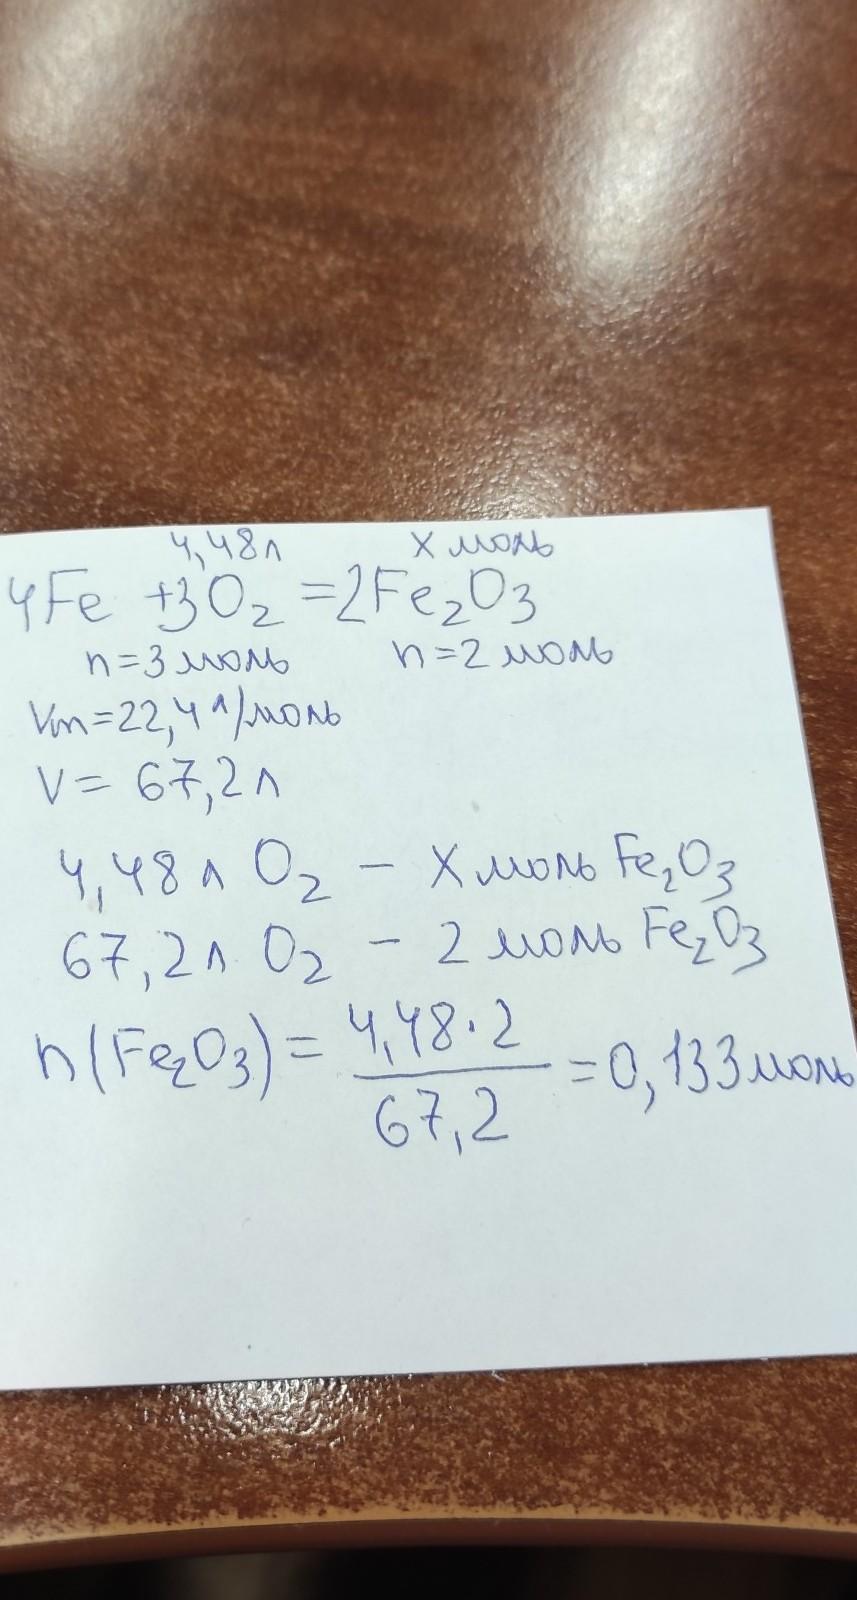 4,48л x моль
4Fe +3O₂ =2Fe₂O₃
n=3 моль n=2 моль
Vm=22,4 л/моль
V= 67,2л
4,48 л O₂ – x моль Fe₂O₃
67,2л O₂ – 2 моль Fe₂O₃
n(Fe₂O₃)= 4,48·2 / 67,2 =0,133моль